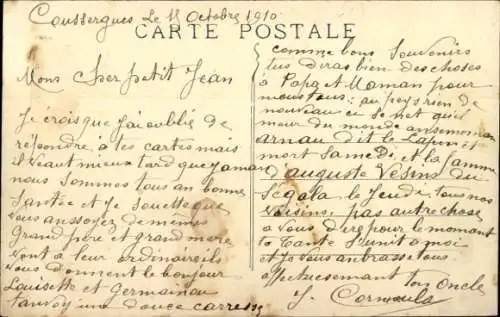 Coussergues Le 15 Octobre 1910
CARTE POSTALE
Mons Cher petit Jéan
Je crois que J'ai oublié de
répondre à tes cartes mais
il veaut mieux tard que jamais
nous sommes tous an bonne
Santée et Je souethe que
vous ansoyez de mêmes
Grand père et grand mere
vont à leur ordinaire ils
vous donnent le bonjour
Louisette et Germain
tanvoy une douce carresse
comme bons Souvenirs
tus diras bien des choses
à Papa et Maman pour
nous tous; au peys rien de
nouveau cu se n'et qu'il
meur du monde
arnau dit le Lapin et
mort Samedi, et la famme
d'auguste Vesins du
Ségala, le Jeudi tous nos
voisins, pas autre chose
à vous dire pour le moment
ta Tante S'unit à moi
et Je vous anbrasse tous
affectuesemant ton Oncle
J.